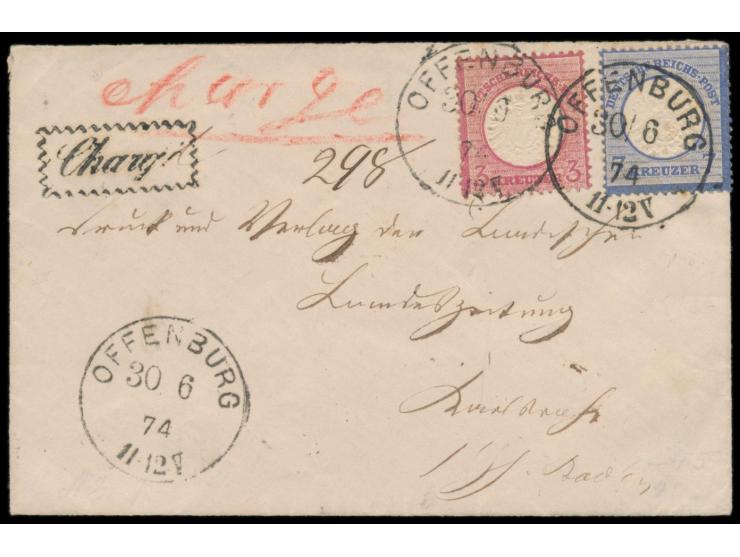 charge
Chargé
298
Druck und Verlag der Badischen
Landeszeitung
Karlsruhe
Baden
OFFENBURG
30 6
74
11-12V
DEUTSCHE REICHS-POST
3 KREUZER 3
OFFENBURG
30 6
74
11-12V
DEUTSCHE REICHS-POST
KREUZER
OFFENBURG
30 6
74
11-12V